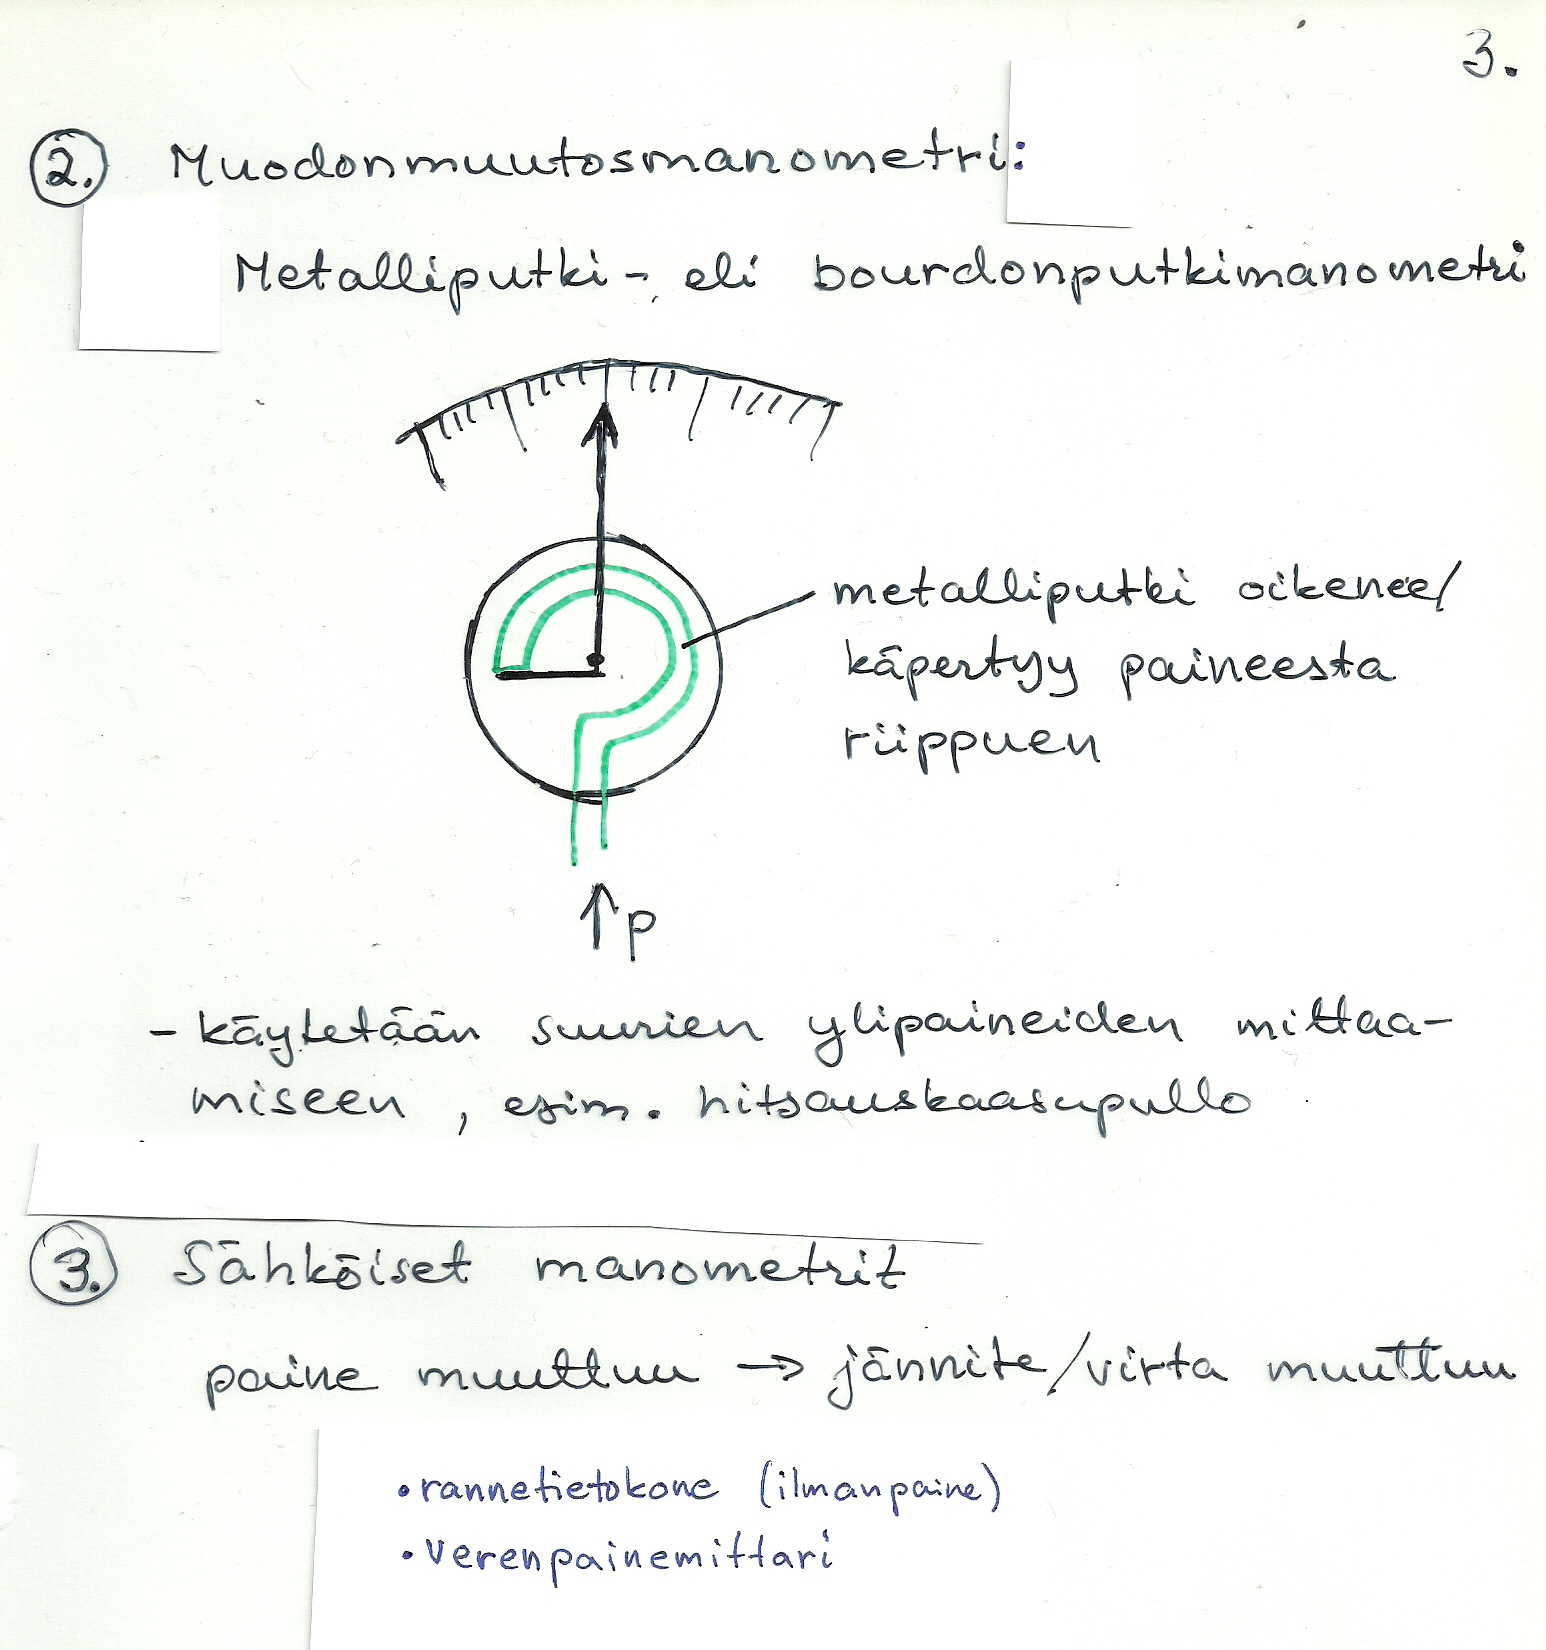 3.
2. Muodonmuutosmanometri:
Metalliputki- eli bourdonputkimanometri
metalliputki oikenee/
käpertyy paineesta
riippuen
↑p
- käytetään suurien ylipaineiden mittaa-
miseen, esim. hitsauskaasupullo
3. Sähköiset manometrit
paine muuttuu → jännite/virta muuttuu
• rannetietokone (ilmanpaine)
• verenpainemittari